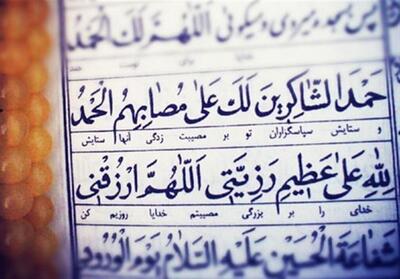 پس بسجده میروی و میگوئی اَللّٰهُمَّ لَكَ الْحَمْدُ
حَمْدَ الشّاكِرينَ لَكَ عَلىٰ مُصابِهِمْ اَلْحَمْدُ
و ستایش سپاسگزاران تو بر مصیبت زدگی آنها ستایش
لِلّٰهِ عَلىٰ عَظيمِ رَزِيَّتى اَللّٰهُمَّ ارْزُقْنى
خدای را بر بزرگی مصیبتم خدایا روزیم کن
شَفاعَةَ الْحُسَيْنِ عَلَيْهِ السَّلامُ يَوْمَ الْوُرُودِ